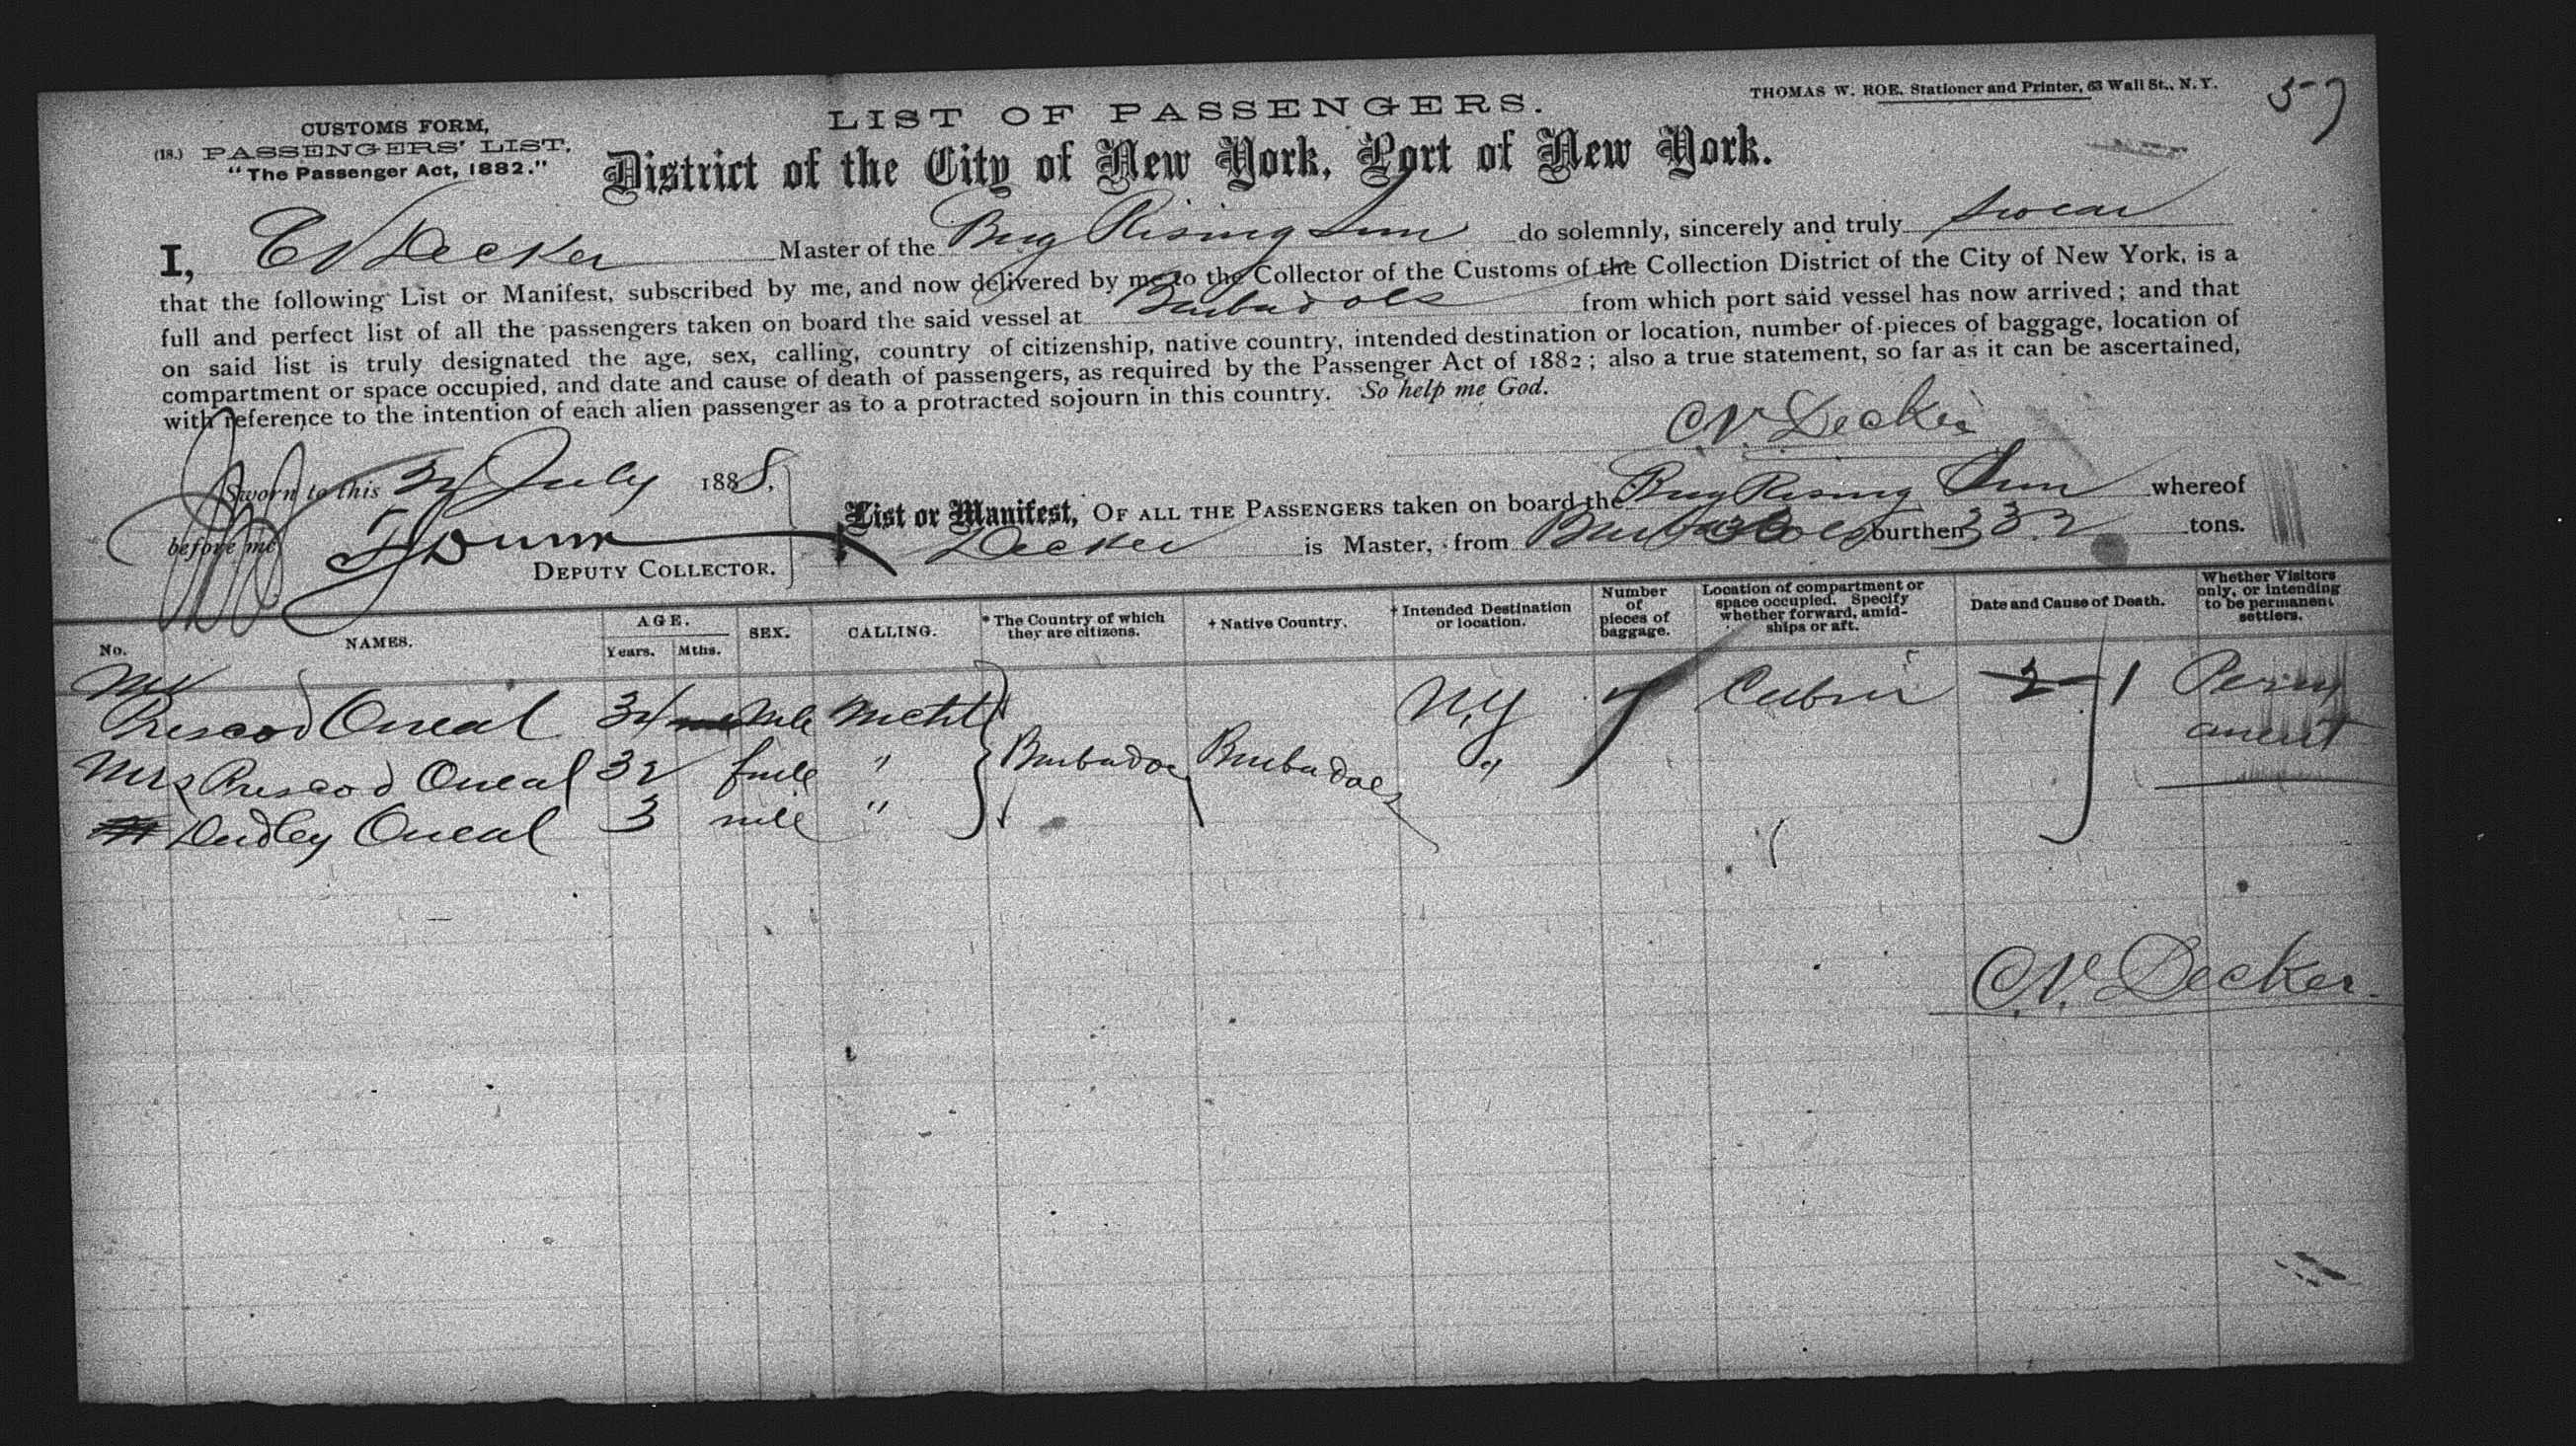 THOMAS W. ROE, Stationer and Printer, 63 Wall St., N. Y.
57
LIST OF PASSENGERS.
CUSTOMS FORM,
(18.) PASSENGERS' LIST,
"The Passenger Act, 1882."
District of the City of New York, Port of New York.
I, C N Decker Master of the Brig Rising Sun do solemnly, sincerely and truly swear
that the following List or Manifest, subscribed by me, and now delivered by me to the Collector of the Customs of the Collection District of the City of New York, is a
full and perfect list of all the passengers taken on board the said vessel at Barbadoes from which port said vessel has now arrived; and that
on said list is truly designated the age, sex, calling, country of citizenship, native country, intended destination or location, number of pieces of baggage, location of
compartment or space occupied, and date and cause of death of passengers, as required by the Passenger Act of 1882; also a true statement, so far as it can be ascertained,
with reference to the intention of each alien passenger as to a protracted sojourn in this country. So help me God.
C.N. Decker
Sworn to this July 1888,
before me Dunn
DEPUTY COLLECTOR.
List or Manifest, OF ALL THE PASSENGERS taken on board the Brig Rising Sun whereof
Decker is Master, from Barbadoes burthen 332 tons.
No. NAMES. AGE. Years. Mths. SEX. CALLING. * The Country of which they are citizens. + Native Country. + Intended Destination or location. Number of pieces of baggage. Location of compartment or space occupied. Specify whether forward, amidships or aft. Date and Cause of Death. Whether Visitors only, or intending to be permanent settlers.
Mr
Prescod Oneal 34 male N.Y 7 Cabin 2 1 Perm
anent
Mrs Prescod Oneal 32 " Barbadoes Barbadoes "
Dudley Oneal 3 male "
C.N. Decker.